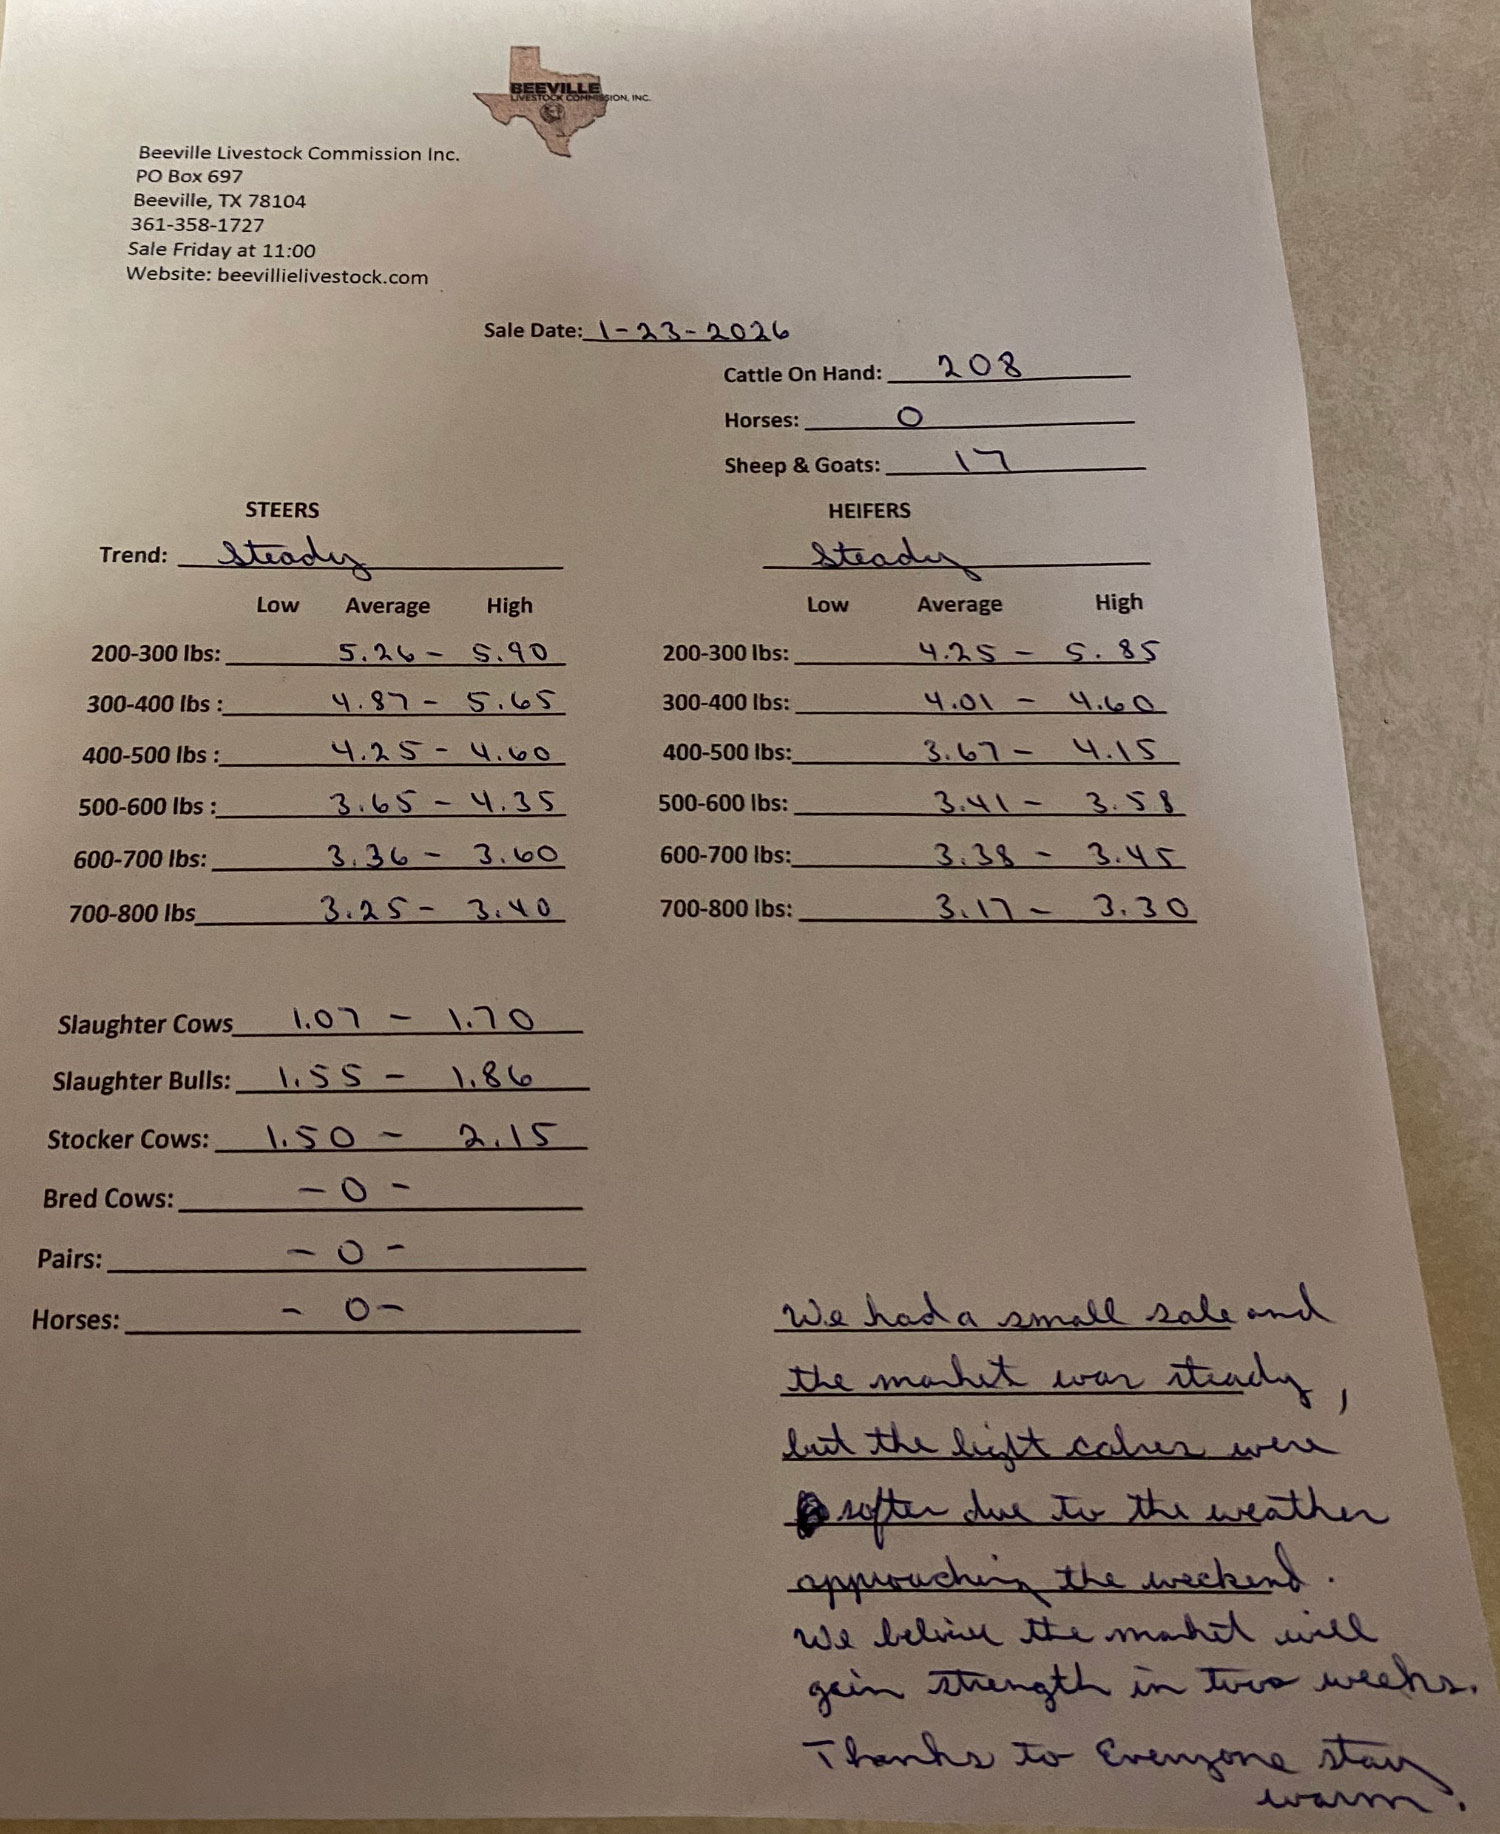 BEEVILLE
LIVESTOCK COMMISSION, INC.
Beeville Livestock Commission Inc.
PO Box 697
Beeville, TX 78104
361-358-1727
Sale Friday at 11:00
Website: beevillielivestock.com
Sale Date: 1-23-2026
Cattle On Hand: 208
Horses: 0
Sheep & Goats: 17
STEERS HEIFERS
Trend: Steady Steady
Low Average High Low Average High
200-300 lbs: 5.26 - 5.90 200-300 lbs: 4.25 - 5.85
300-400 lbs : 4.87 - 5.65 300-400 lbs: 4.01 - 4.60
400-500 lbs : 4.25 - 4.60 400-500 lbs: 3.67 - 4.15
500-600 lbs : 3.65 - 4.35 500-600 lbs: 3.41 - 3.58
600-700 lbs: 3.36 - 3.60 600-700 lbs: 3.38 - 3.45
700-800 lbs 3.25 - 3.40 700-800 lbs: 3.17 - 3.30
Slaughter Cows 1.07 - 1.70
Slaughter Bulls: 1.55 - 1.86
Stocker Cows: 1.50 - 2.15
Bred Cows: - 0 -
Pairs: - 0 -
Horses: - 0 -
We had a small sale and
the market was steady,
but the light calves were
softer due to the weather
approaching the weekend.
We believe the market will
gain strength in two weeks.
Thanks to Everyone stay
warm.